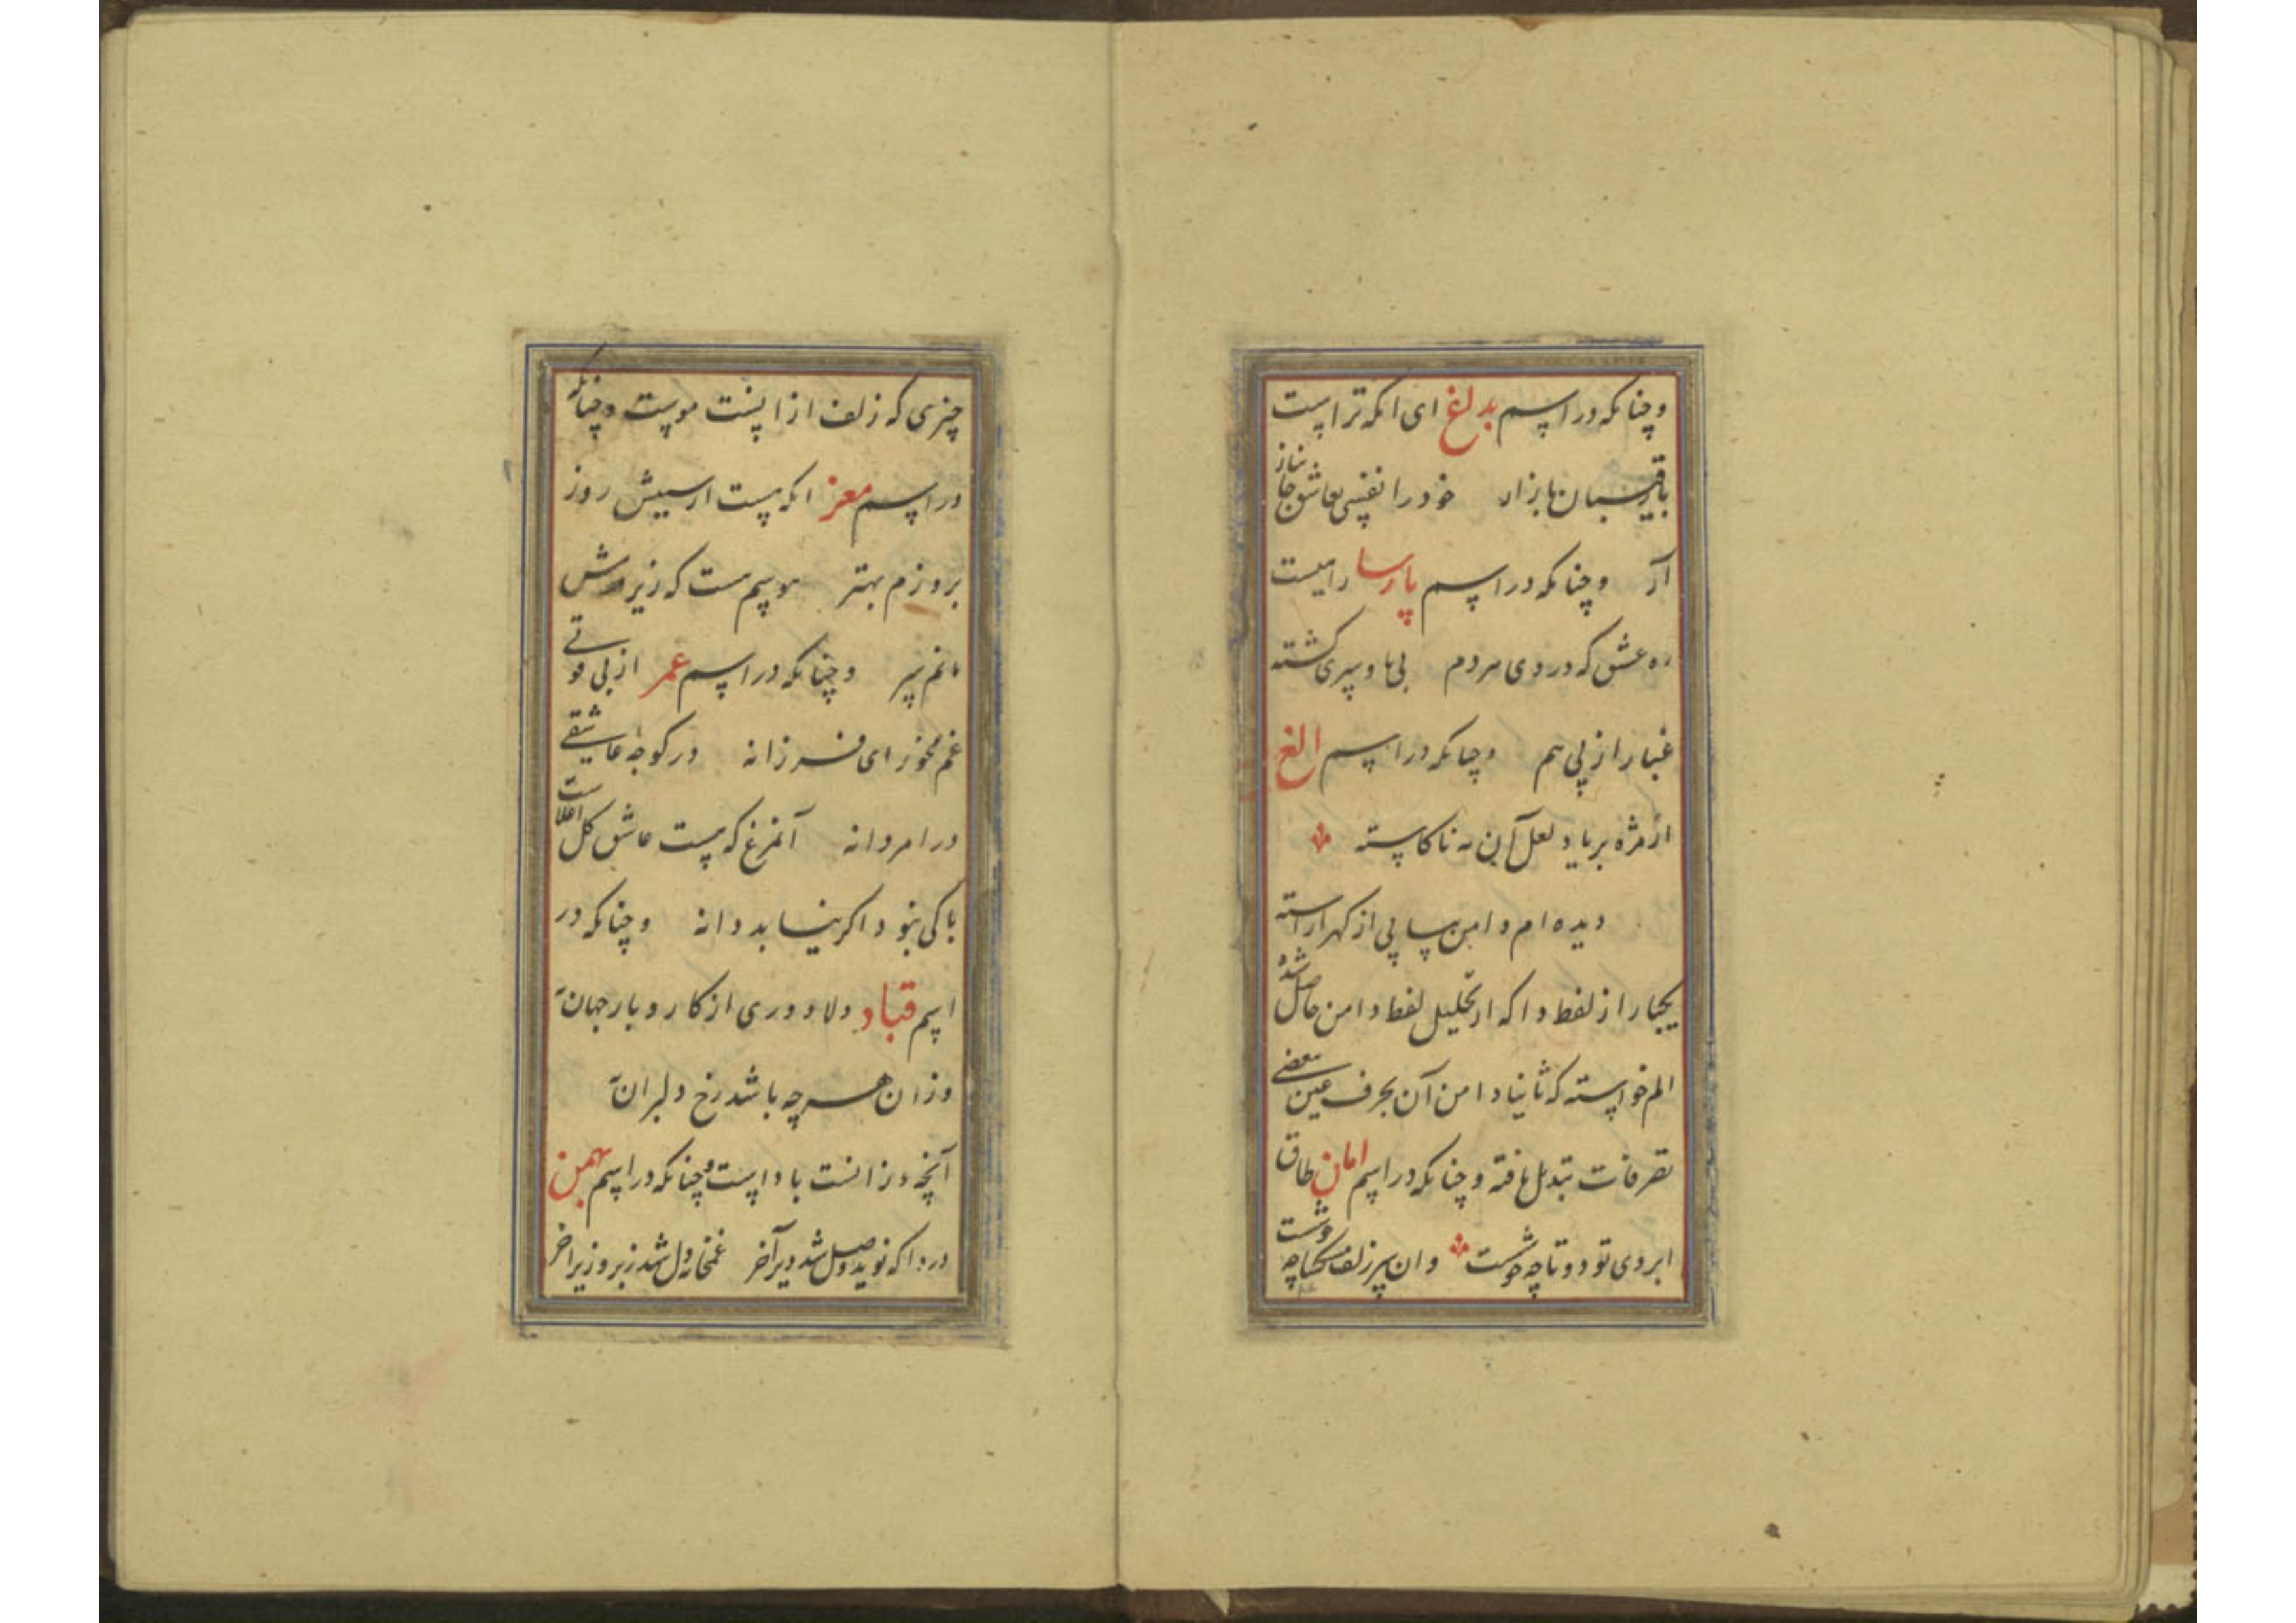 وچنانکه در اسم بدلغ ای انکه تراست
با رقیبان بازار خود را نفسی بعاشق جانباز
آر وچنانکه در اسم پارسا رامیست
ره عشق که در وی مردم بی پا وسری گشته
غبار از پی هم وچنانکه در اسم الغ
از مژه بر یاد لعل آن نه ناکاسته
دیده ام دامن بپا پی از کهر اراسته
یکبار از لفظ دا که از تحلیل لفظ دامن حاصل شده
الم خواسته که ثانیا دامن آن بحرف عین بعضی
تصرفات تبدیل یافته وچنانکه در اسم امان طاق
ابروی تو دو تا چه خوشست وان سر زلف مشکسا چه خوشست
چیزی که زلف از انست موست وچنانکه
در اسم معز انکه هست از سیبش روز
بروزم بهتر موسم ست که زیر
ماتم سر وچنانکه در اسم عمر از بی قوتی
غم مخور ای فرزانه در کوچه عاشقی
درا مردانه آنمرغ که هست عاشق کل اعلاست
باکی نبود اکر نیابد دانه وچنانکه در
اسم قباد دلا دوری از کار وبار جهان به
وزان هرچه باشد رخ دلبران به
آنچه در انست باد است وچنانکه در اسم بهمن
دردا که نوید وصل شد دیر آخر غمخانه دل شد زبر وزیر اخر